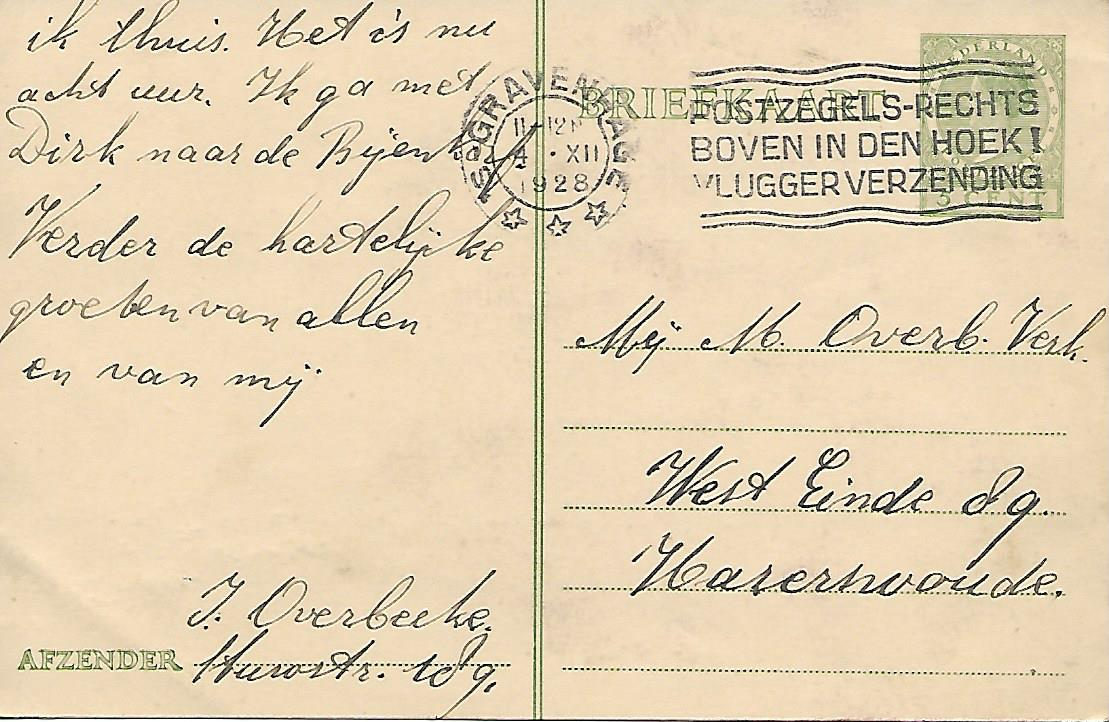 ik thuis. Het is nu
acht uur. Ik ga met
Dirk naar de Bijenkorf
Verder de hartelijke
groeten van allen
en van mij
J. Overbeeke.
AFZENDER
'S-GRAVENHAGE
11-12N
4 · XII
1928
BRIEFKAART
POSTZEGELS-RECHTS
BOVEN IN DEN HOEK!
VLUGGER VERZENDING
NEDERLAND
3 CENT
Mij M. Overb. Verh.
West Einde 89.
Hazerswoude.